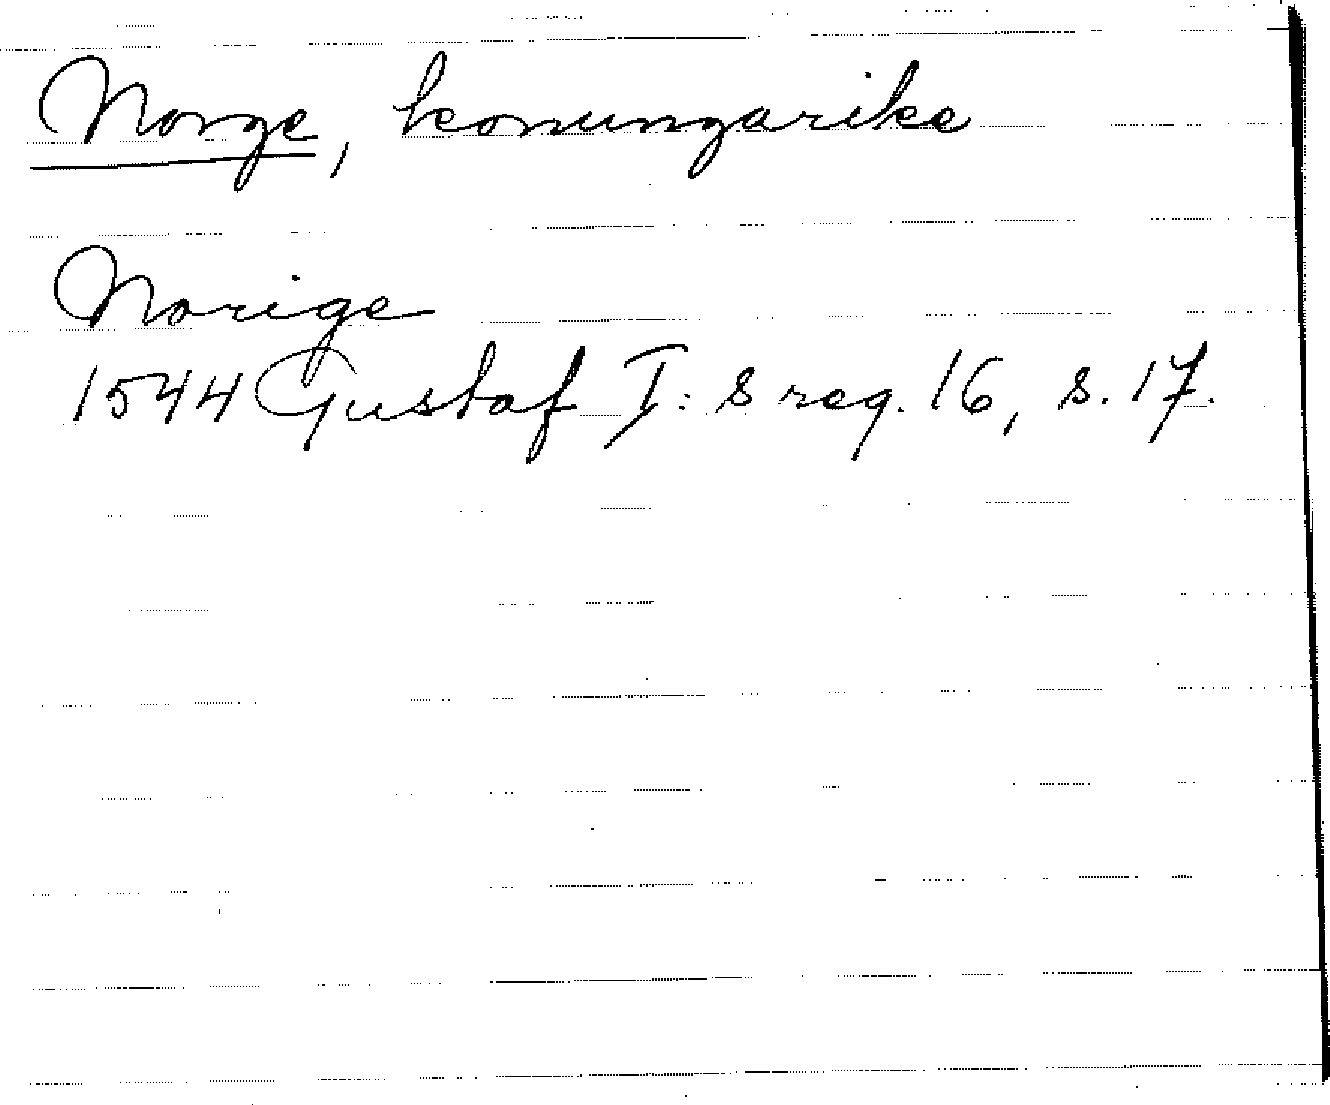 Norge, konungarike
Norige
1544 Gustaf I: s reg. 16, s. 17.